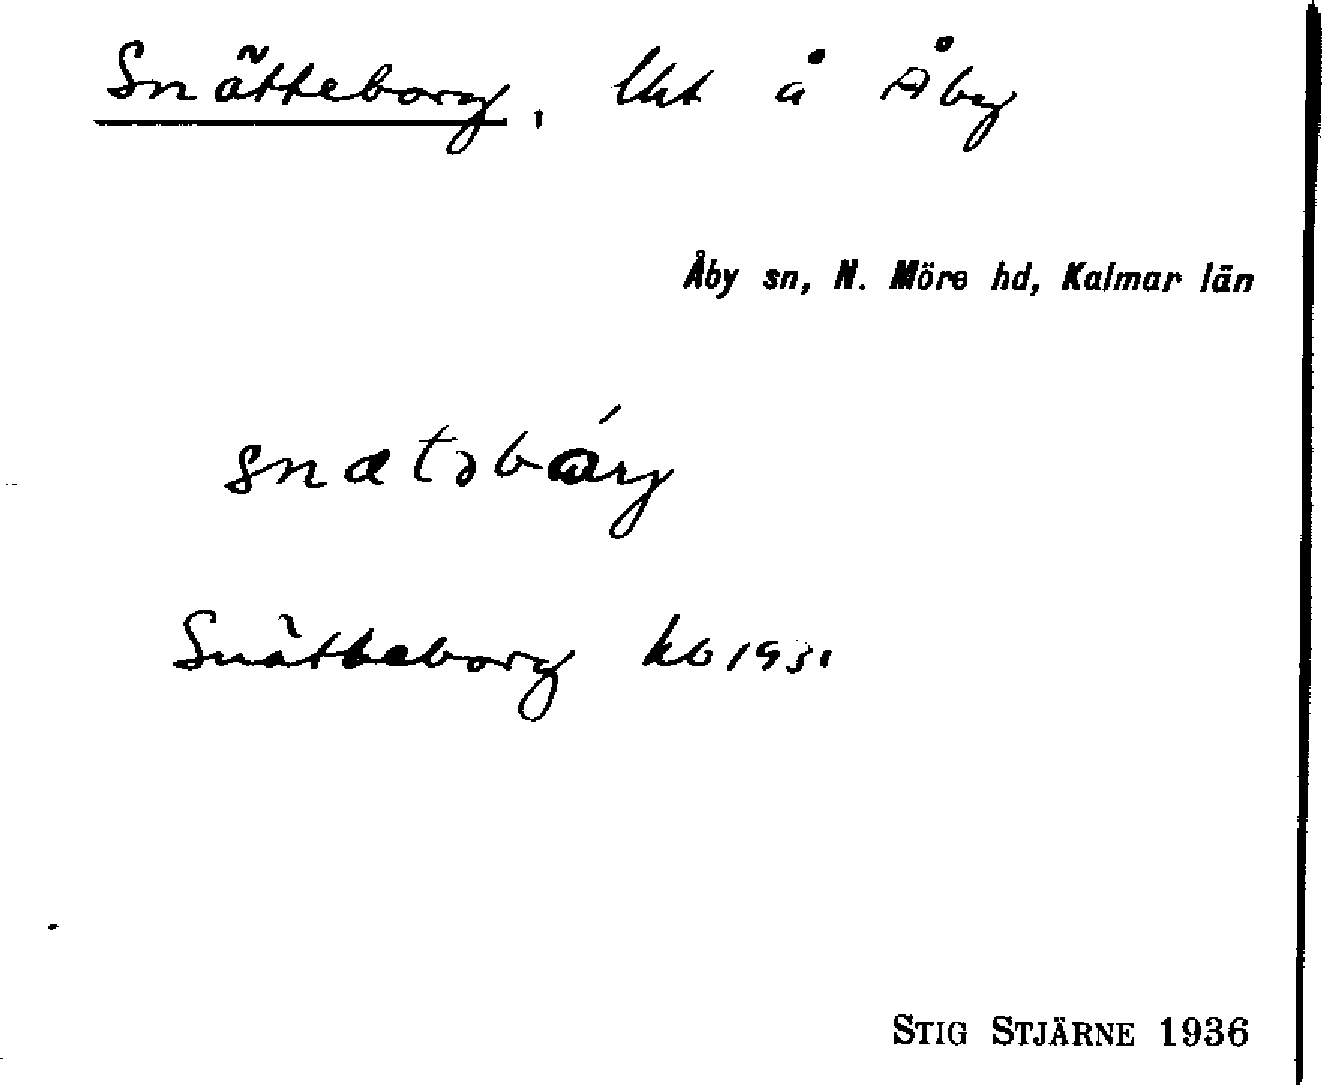 Snätteborg, lht å Åby
Åby sn, N. Möre hd, Kalmar län
snætəbárj
Snätteborg kb 1931
STIG STJÄRNE 1936